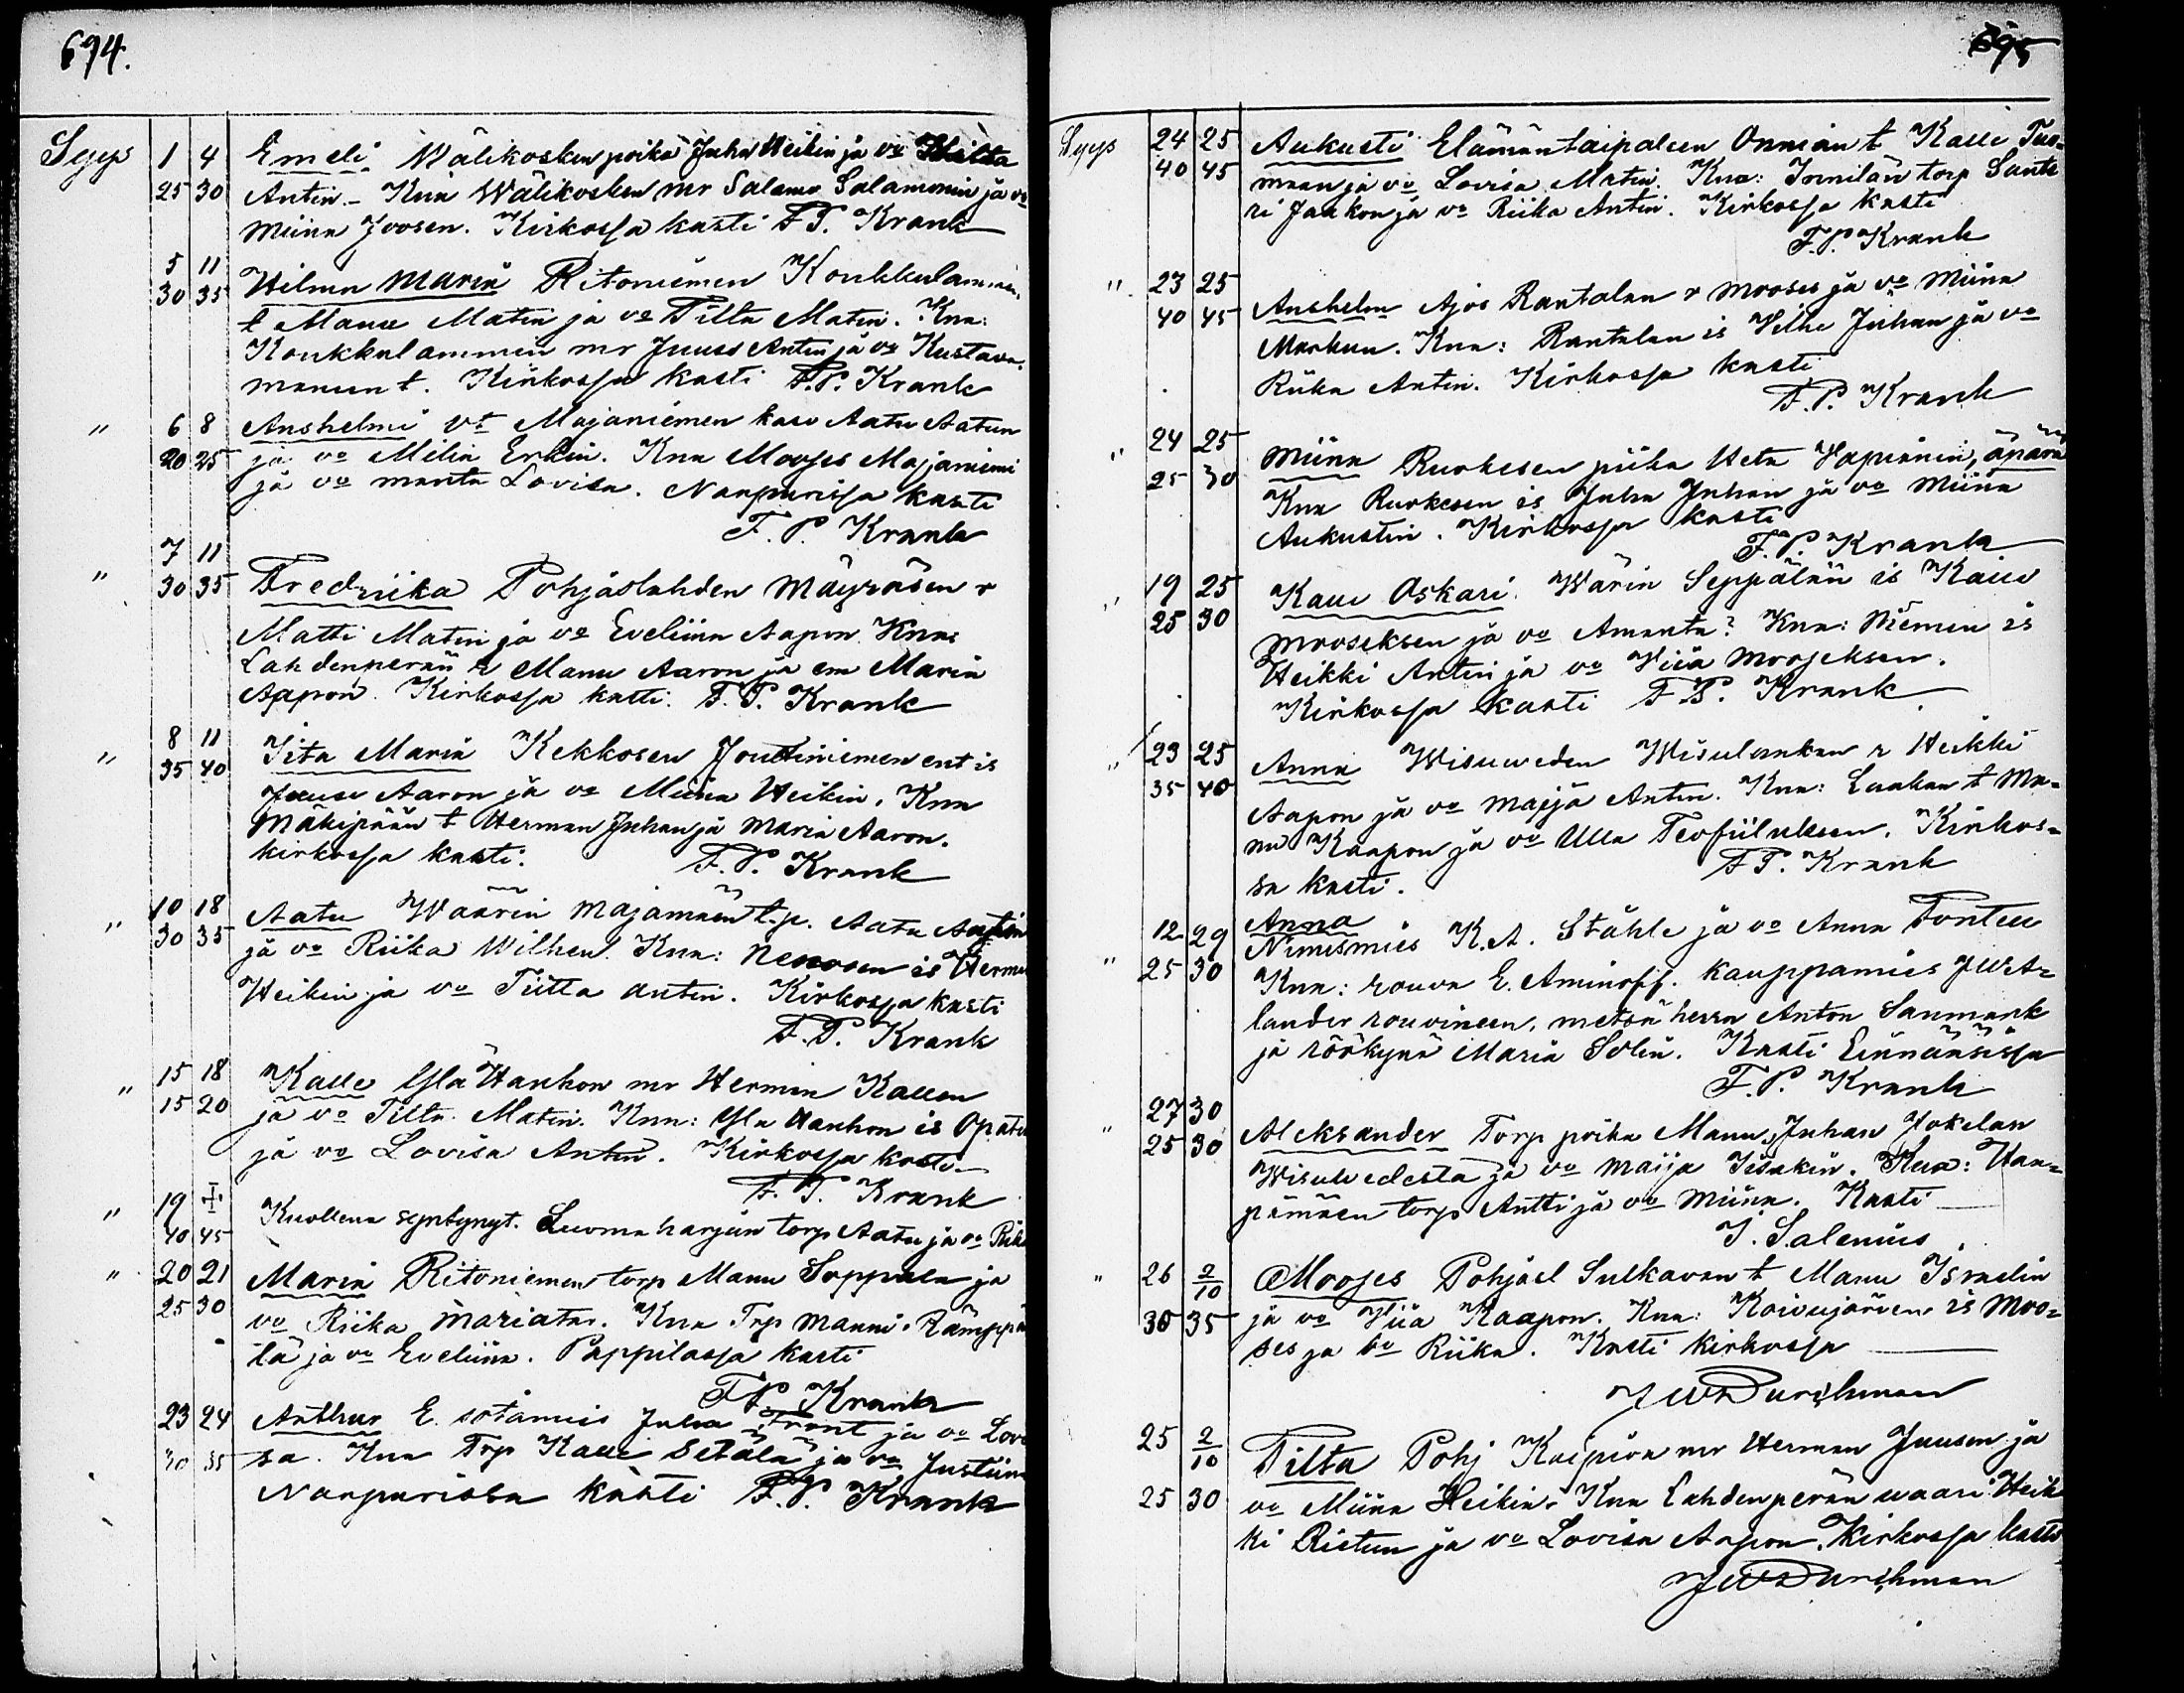 694.
Syys 1 4 Emeli Wälikosken poika Juha Heikin ja vo Hilta
25 30 Antin. - Knii Wälikosken mr Salamo Salamonin ja vo
Miina Joosen. Kirkossa kasti F.P. Krank
5 11
30 35 Hilma Maria Ritoniemen Koukkulammin
t Manu Matin ja vo Tilta Matin. Knn:
Koukkulammin mr Juuso Antin ja vo Kustava
manun t. Kirkossa kasti F.P. Krank
" 6 8 Anshelmi vt Majaniemen kasv Aatu Aatun
20 25 ja vo Milia Erkin. Knn Mooses Majaniemi
ja vo manta Lovisa. Naapurissa kasti
F.P. Krank
7 11
" 30 35 Fredriika Pohjaslahden Mäyräsen r
Matti Matin ja vo Eveliina Aapon. Knn:
Lahdenperän r Manu Aaron ja em Maria
Aapon. Kirkossa kasti. F.P. Krank
8 11
" 35 40 Iita Maria Kekkosen Joutiniemen ent is
Juuse Aaron ja vo Miina Heikin. Knn
Mäkipään t Herman Juhan ja Maria Aaron.
kirkossa kasti. F.P. Krank
10 18
" 30 35 Aatu Wäärin Majamäen t.p. Aatu Antin
ja vo Riika Wilhen. Knn: Nenosen is Herma
Heikin ja vo Tiitta antin. Kirkossa kasti
F.P. Krank
15 18
" 15 20 Kalle Ylä Hanhon mr Hermin Kallen
ja vo Tilta Matin. Knn: Yla Hanhon is Opatu
ja vo Lovisa Antin. Kirkossa kasti.
F.P. Krank
" 19 ‡
40 45 Kuollena syntynyt. Luomaharjun torp Aatu ja vo Riik
" 20 21 Maria Ritoniemen torp Manu Soppela ja
25 30 vo Riika mariatar. Knn Trp Manni Rämppä
lä ja vo Eveliina. Pappilassa kasti
F.P. Krank
23 24 Arthur E. sotamies Juha Front ja vo Lovi
30 35 sa. Knn Trp Kalle Setälä ja vo Justiina
Naapurissa kasti F.P. Krank
695
Syys 24 25 Aukusti Elämäntaipaleen Onnian t Kalle Tuo=
40 45 maan ja vo Lovisa Matin. Knn: Jonnilän torp Sante
ri Jaakon ja vo Riika Antin. Kirkossa kasti
F.P. Krank
" 23 25
40 45 Anshelm Ajos Rantalan r Mooses ja vo Miina
Markun. Knn: Rantalan is Wilhe Juhan ja vo
Riika Antin. Kirkossa kasti
F.P. Krank
" 24 25
25 30 Miina Ruokesen piika Heta Vapianin, äpärä
Knn Ruokesen is Juha Juhan ja vo Miina
Aukustin. Kirkossa kasti
F.P. Krank
" 19 25
25 30 Kalle Oskari Wärin Seppälän is Kalle
mooseksen ja vo Amanta? Knn: Niemen is
Heikki Antin ja vo Viia Mooseksen.
Kirkossa kasti F.P. Krank
" 23 25
35 40 Anna Wisuweden Wisulankan r Heikki
Aapon ja vo Maija Antin. Knn: Laakan t Ma=
nu Kaapon ja vo Ulla Teofiiluksen. Kirkos=
sa kasti. F.P. Krank
12 29 Anna
Nimismies K.A. Ståhle ja vo Anna Tontell
" 25 30 Knn: rouva E. Aminoff. kauppamies J W Ar=
lander rouvineen, metsä herra Anton Sanmark
ja röökynä Maria Solin. Kasti Einnäässä
F.P. Krank
27 30
" 25 30 Aleksander Torp poika Manu Juhan Jokelan
Wisuwedestä ja vo Maija Iisakin. Knn: Haa=
pamäen torp Antti ja vo Miina. Kasti
J. Salenius
" 26 2/10 Mooses Pohjasl Sulkavan t Manu Israelin
30 35 ja vo Viia Kaapon. Knn: Koivujärven is Moo=
ses ja vo Riika. Kasti kirkossa
J W Durchman
25 2/10 Tilta Pohj Kaipion mr Herman Juusen ja
25 30 vo Miina Heikin. Knn Lahdenperän waari Heik
ki Ristun ja vo Lovisa Aapon. Kirkossa kasti
J W Durchman